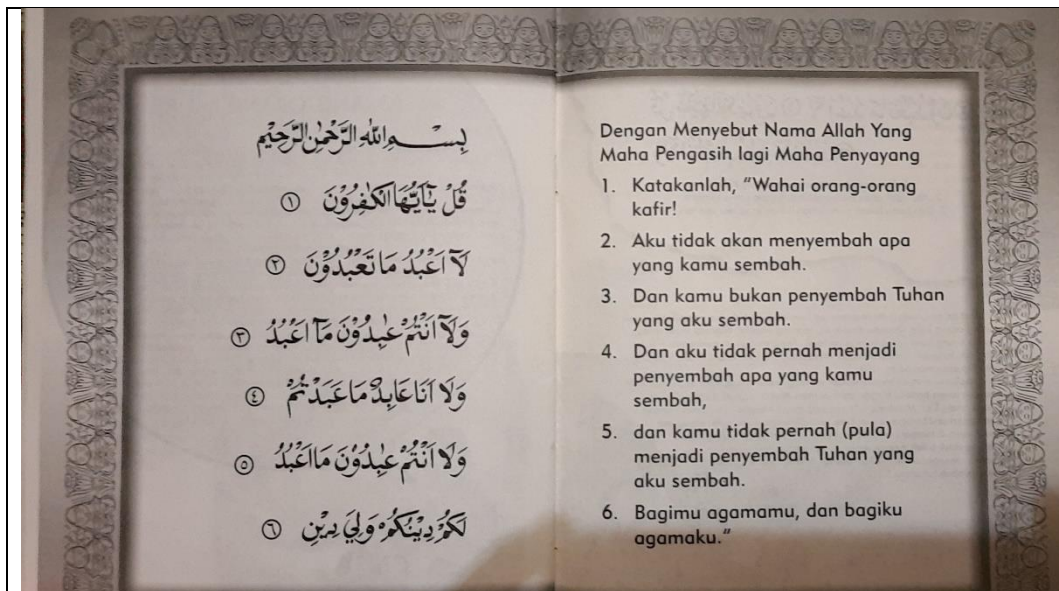 بِسْمِ اللهِ الرَّحْمٰنِ الرَّحِيْمِ
قُلْ يٰٓاَيُّهَا الْكٰفِرُوْنَ ۝١
لَآ اَعْبُدُ مَا تَعْبُدُوْنَ ۝٢
وَلَآ اَنْتُمْ عٰبِدُوْنَ مَآ اَعْبُدُ ۝٣
وَلَا اَنَا عَابِدٌ مَا عَبَدْتُمْ ۝٤
وَلَا اَنْتُمْ عٰبِدُوْنَ مَا اَعْبُدُ ۝٥
لَكُمْ دِيْنُكُمْ وَلِيَ دِيْنِ ۝٦
Dengan Menyebut Nama Allah Yang
Maha Pengasih lagi Maha Penyayang
1. Katakanlah, “Wahai orang-orang
kafir!
2. Aku tidak akan menyembah apa
yang kamu sembah.
3. Dan kamu bukan penyembah Tuhan
yang aku sembah.
4. Dan aku tidak pernah menjadi
penyembah apa yang kamu
sembah,
5. dan kamu tidak pernah (pula)
menjadi penyembah Tuhan yang
aku sembah.
6. Bagimu agamamu, dan bagiku
agamaku.“